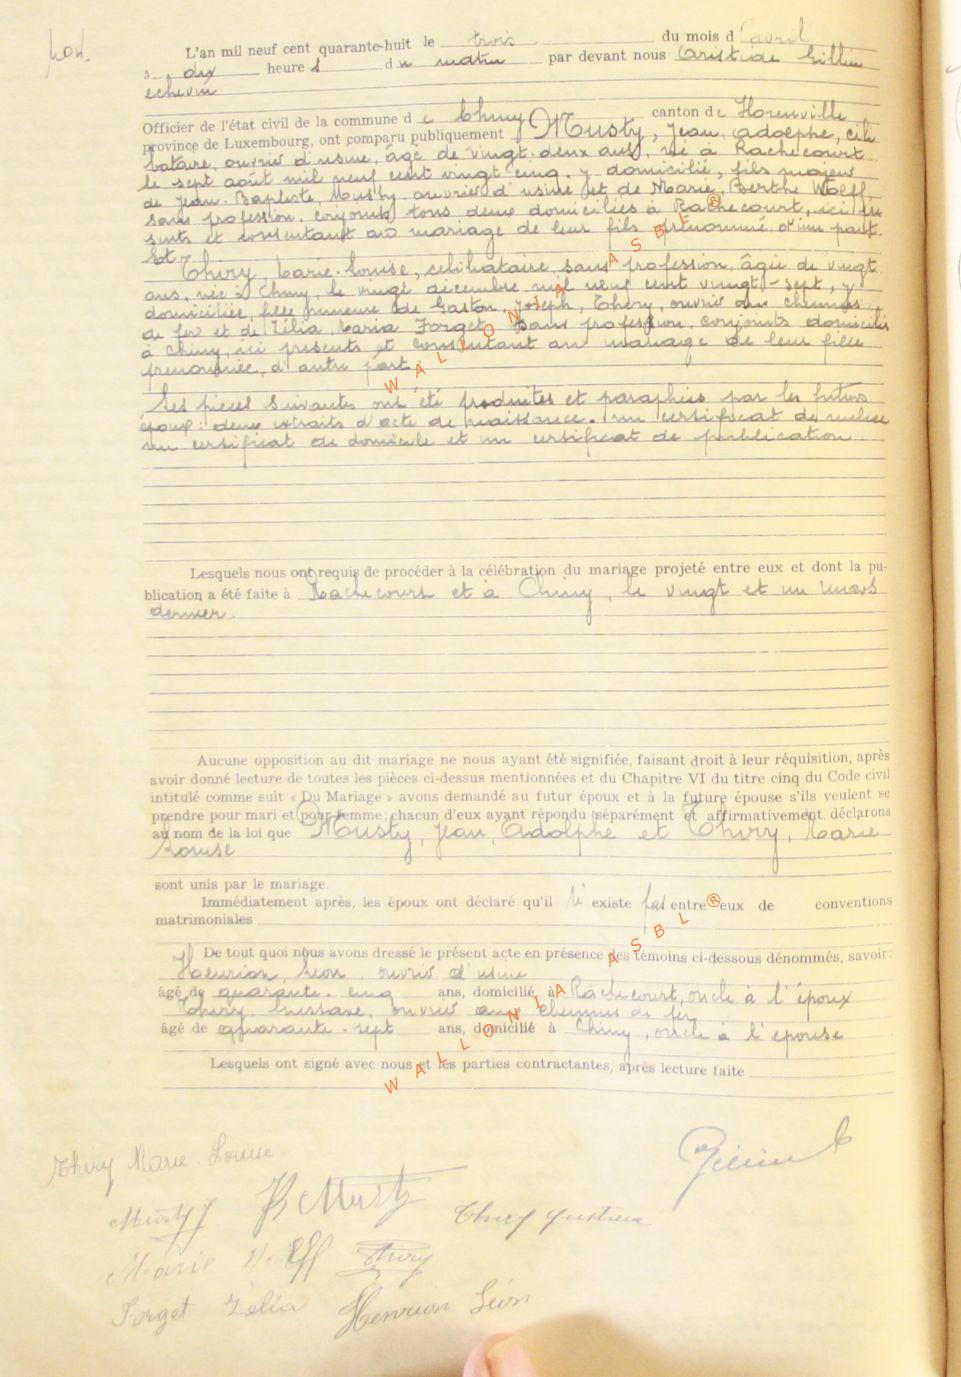 L'an mil neuf cent quarante-huit le trois du mois d'avril
à dix heures du matin par devant nous Aristide Gillin
échevin
Officier de l'état civil de la commune de Chiny canton de Florenville
province de Luxembourg, ont comparu publiquement Musty, Jean, Adolphe, céli
bataire, ouvrier d'usine, âgé de vingt-deux ans, né à Rachecourt
le sept août mil neuf cent vingt cinq, y domicilié, fils majeur
de Jean-Baptiste, Musty, ouvrier d'usine et de Marie, Berthe Wolff,
sans profession, conjoints tous deux domiciliés à Rachecourt, ici pré
sents et consentant au mariage de leur fils prénommé, d'une part
Et
Thiry, Marie-Louise, célibataire, sans profession, âgée de vingt
ans, née à Chiny, le vingt décembre mil neuf cent vingt-sept, y
domiciliée, fille mineure de Gaston, Joseph, Thiry, ouvrier aux chemins
de fer et de Zélia, Maria Forget, sans profession, conjoints domiciliés
à Chiny, ici présents et consentant au mariage de leur fille
prénommée, d'autre part.
Les pièces suivantes ont été produites et paraphées par les futurs
époux: deux extraits d'acte de naissance. un certificat de milice
un certificat de domicile et un certificat de publication.
Lesquels nous ont requis de procéder à la célébration du mariage projeté entre eux et dont la pu-
blication a été faite à Rachecourt et à Chiny, le vingt et un mars
dernier.
Aucune opposition au dit mariage ne nous ayant été signifiée, faisant droit à leur réquisition, après
avoir donné lecture de toutes les pièces ci-dessus mentionnées et du Chapitre VI du titre cinq du Code civil
intitulé comme suit « Du Mariage » avons demandé au futur époux et à la future épouse s'ils veulent se
prendre pour mari et pour femme; chacun d'eux ayant répondu séparément et affirmativement, déclarons
au nom de la loi que Musty, Jean, Adolphe et Thiry, Marie
Louise
sont unis par le mariage.
Immédiatement après, les époux ont déclaré qu'il n' existe pas entre eux de conventions
matrimoniales
De tout quoi nous avons dressé le présent acte en présence des témoins ci-dessous dénommés, savoir:
Henrion, Léon ouvrier d'usine
âgé de quarante-cinq ans, domicilié à Rachecourt, oncle à l'époux
Thiry Gustave, ouvrier aux chemins de fer
âgé de quarante-sept ans, domicilié à Chiny, oncle à l'épouse
Lesquels ont signé avec nous et les parties contractantes, après lecture faite
WALLONIA ASBL ®
WALLONIA ASBL ®
Thiry Marie-Louise
Musty J
Musty
Thiry Gustave
Marie Wolff
Thiry
Forget Zélia
Henrion Léon